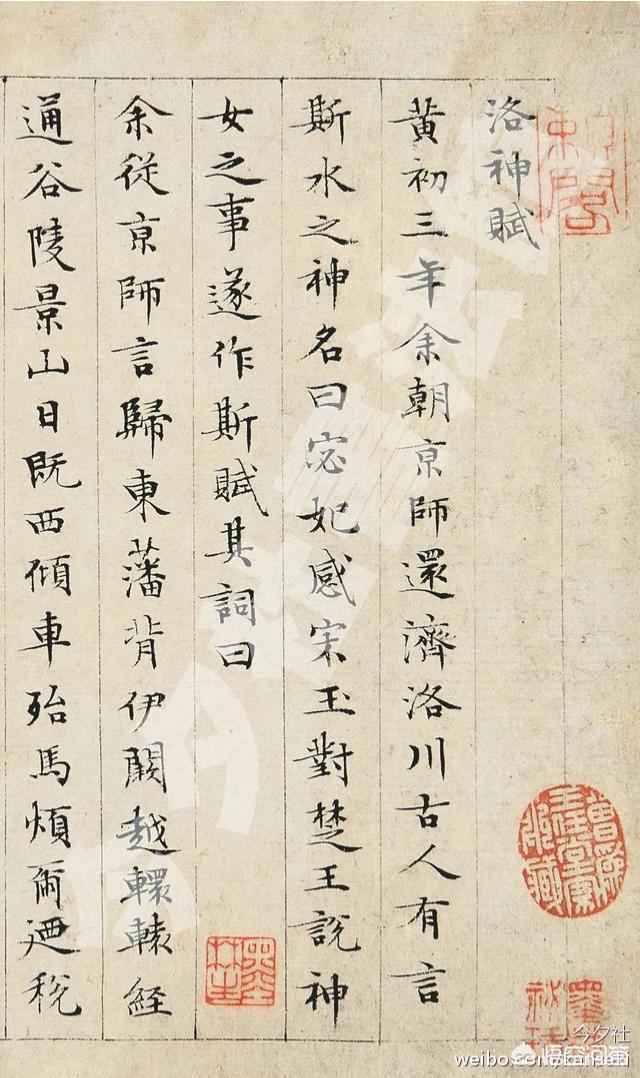 洛神賦
黄初三年余朝京師還濟洛川古人有言
斯水之神名曰宓妃感宋玉對楚王說神
女之事遂作斯賦其詞曰
余從京師言歸東藩背伊闕越轘轅經
通谷陵景山日既西傾車殆馬煩爾迺税
今夕社
悟空问答